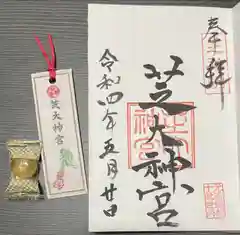 奉拝
芝大神宮
令和四年五月廿日
芝大神宮